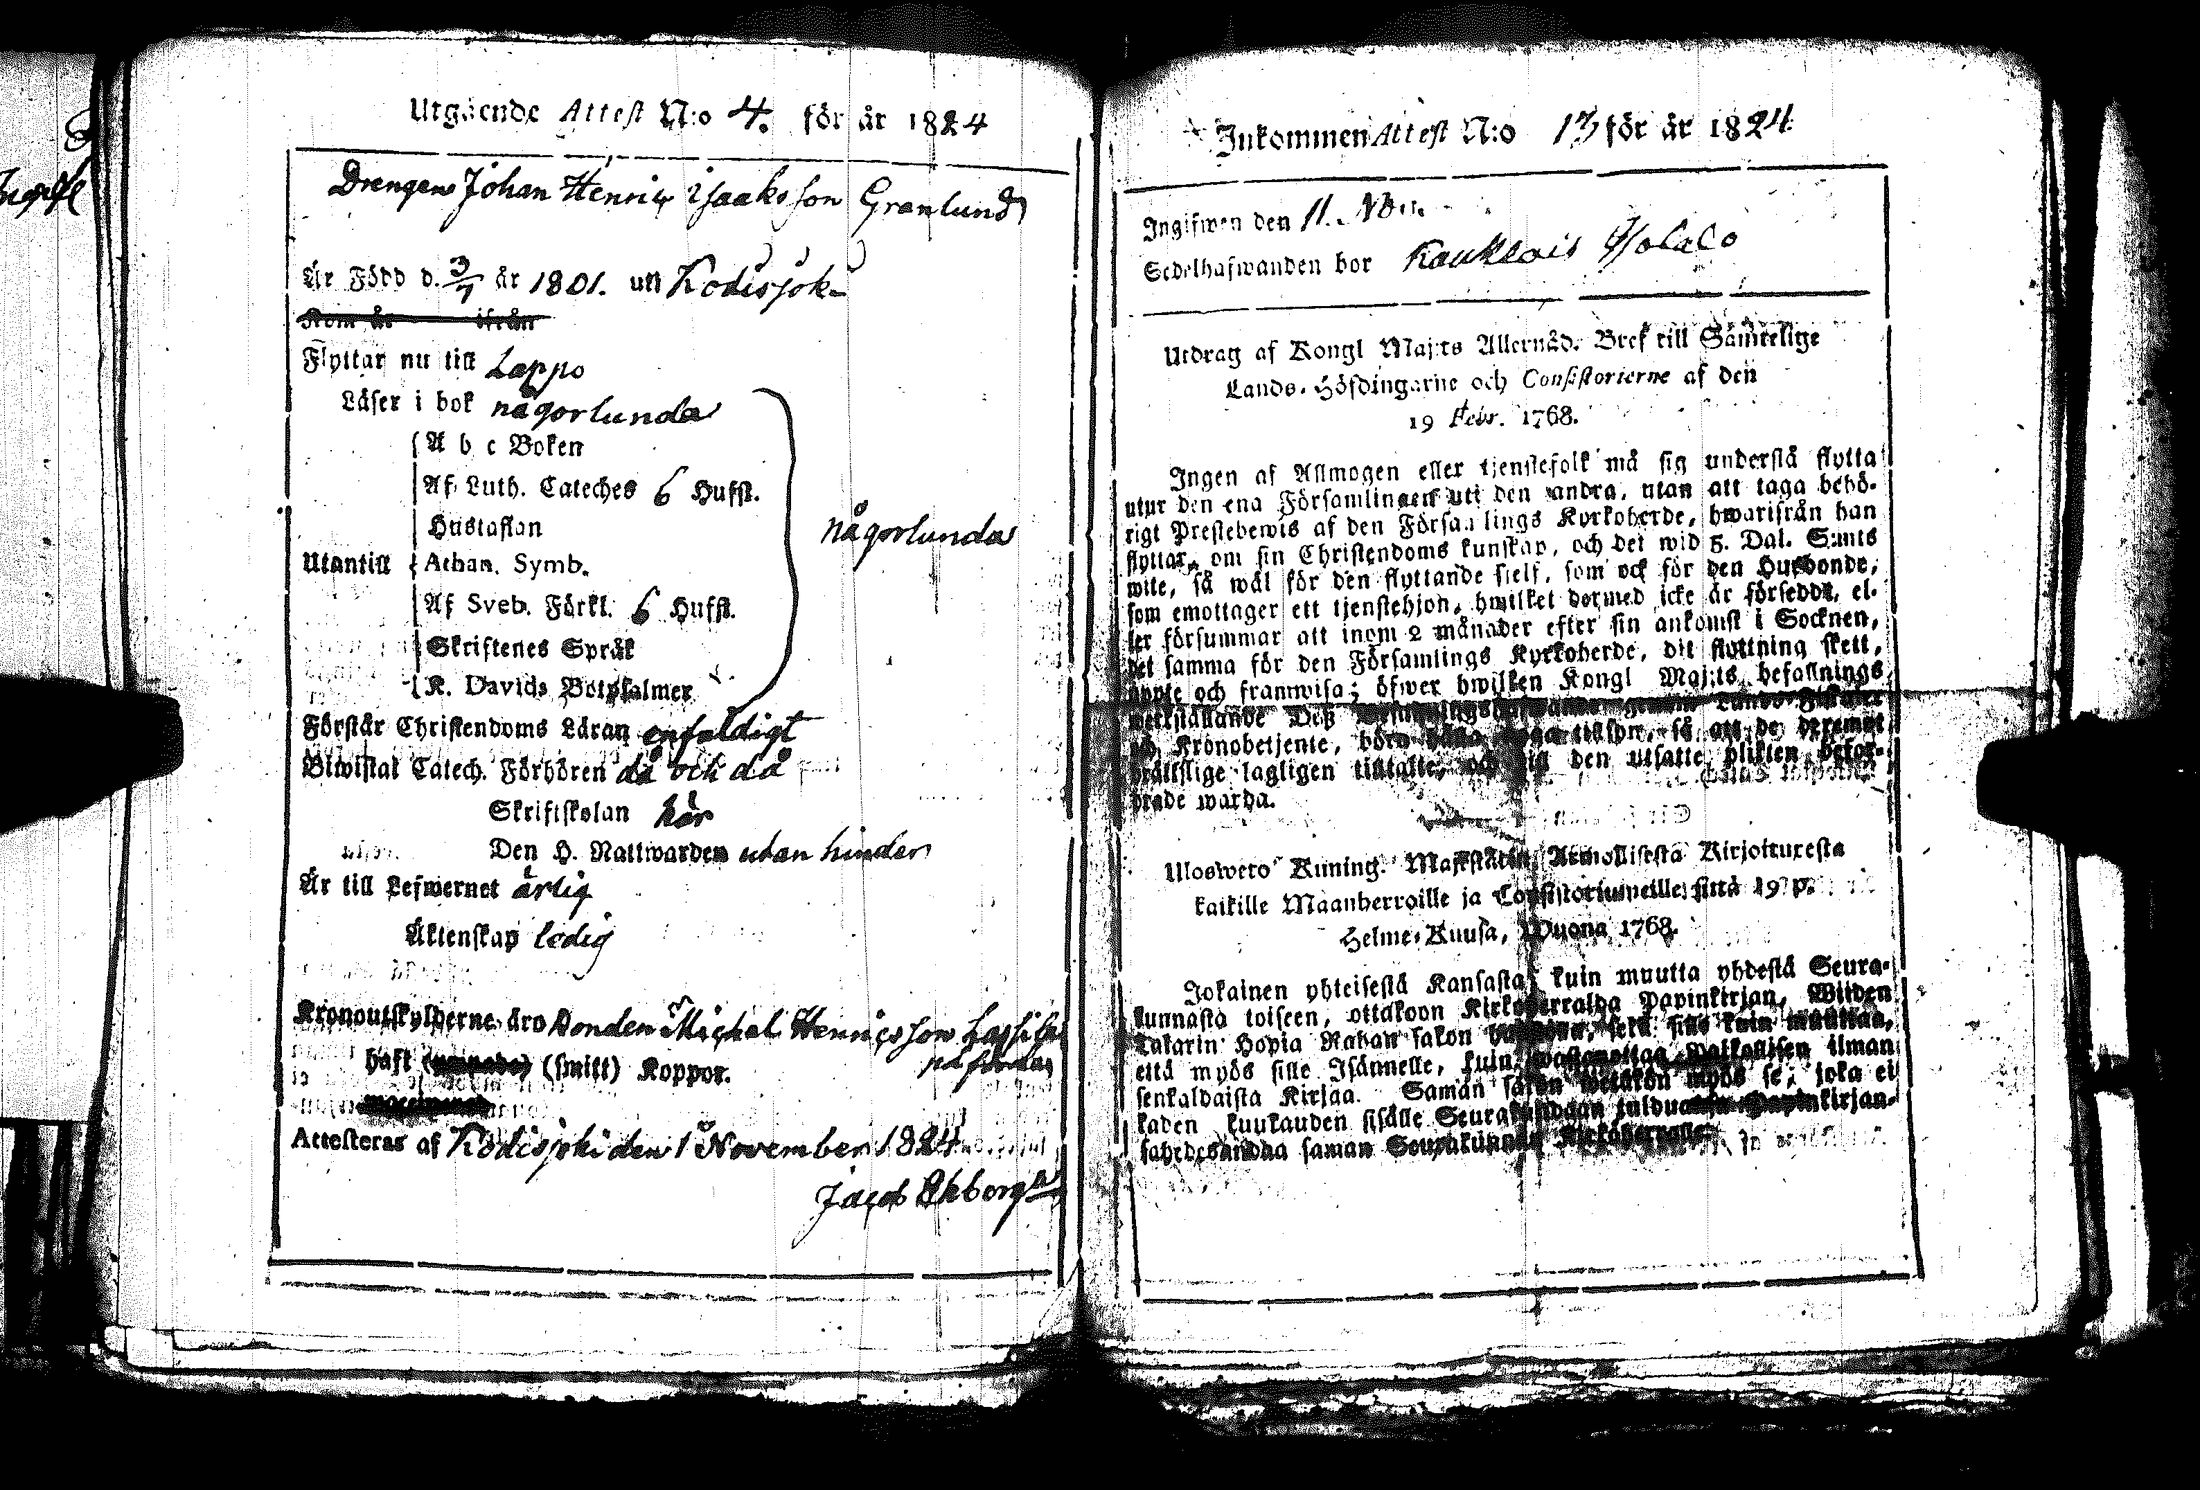 Utgående Attest N:o 4. för år 1824
Drengen Johan Henric Isaaksson Granlund
Är Född d. 3/7 år 1801. uti Kodisjoki
Kom år ifrån
Flyttar nu till Lappo
Läser i bok någorlunda
A b c Boken
Af Luth. Cateches 6 Hufst.
Hustaflan
Utantill Athan. Symb.
Af Sveb. Förkl. 6 Hufst.
Skriftenes Språk
K. Davids Botpsalmer
någorlunda
Förstår Christendoms Läran enfaldigt
Biwistat Catech. Förhören då och då
Skriftskolan här
Den H. Nattwarden utan hinder
Är till Lefwernet ärlig
Äktenskap ledig
Kronoutskylderne äro Bonden Michel Henricsson
påförda
haft (smitt) Koppor.
Attesteras af Kodisjoki den 1 November 1824
Jacob
Inkommen Attest N:o 13 för år 1824
Ingifwen den 11.
Sedelhafwanden bor
Utdrag af Kongl Maj:ts Allernåd. Bref till Samtelige
Lands-Höfdingarne och Consistorierne af den
19 Febr. 1768.
Ingen af Allmogen eller tjenstefolk må sig understå flytta
utur den ena Församlingen uti den andra, utan att taga behö-
rigt Prestebewis af den Församlings Kyrkoherde, hwarifrån han
flyttar, om sin Christendoms kunskap, och det wid 5. Dal. S:mts
wite, så wäl för den flyttande sielf, som ock för den Husbonde,
som emottager ett tjenstehjon, hwilket dermed icke är försedt, el-
ler försummar att inom 2 månader efter sin ankomst i Socknen,
det samma för den Församlings Kyrkoherde, dit flyttning skett,
uppte och framwisa; öfwer hwilken Kongl Maj:ts befallnings
werkställande Deß Lands Fiskaler
och Kronobetjente, böra hafwa noga tillsyn, så att de deremot
brättslige lagligen tilltalte, och til den utsatte plikten befor-
drade warda.
Ulosweto Kuning. Majestätin Armollisesta Kirjoituxesta
kaikille Maanherroille ja Consistoriumeille siitä 19 p.
Helme-Kuusa, Wuona 1768.
Jokainen yhteisestä Kansasta, kuin muutta yhdestä Seura-
kunnasta toiseen, ottakoon Kirkoherralda Papinkirjan, Wiiden
Talarin Hopia Rahan sakon sekä sille kuin muuttaa,
että myös sille Isännelle, kuin wastanottaa Palkollisen ilman
senkaldaista Kirjaa. Saman sakon wetäkön myös se, joka ei
kahden kuukauden sisälle Seurakundaan tulduansa Papinkirjan-
sa saman Seurakunnan Kirkoherralle